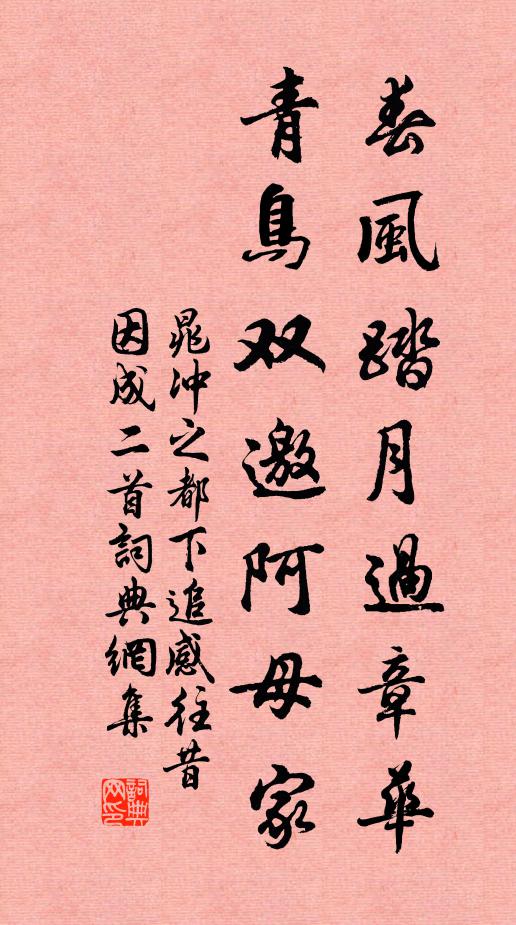 春風踏月過章華
青鳥双邀阿母家
晁冲之都下追感往昔
因成二首詞典網集
詞典网印